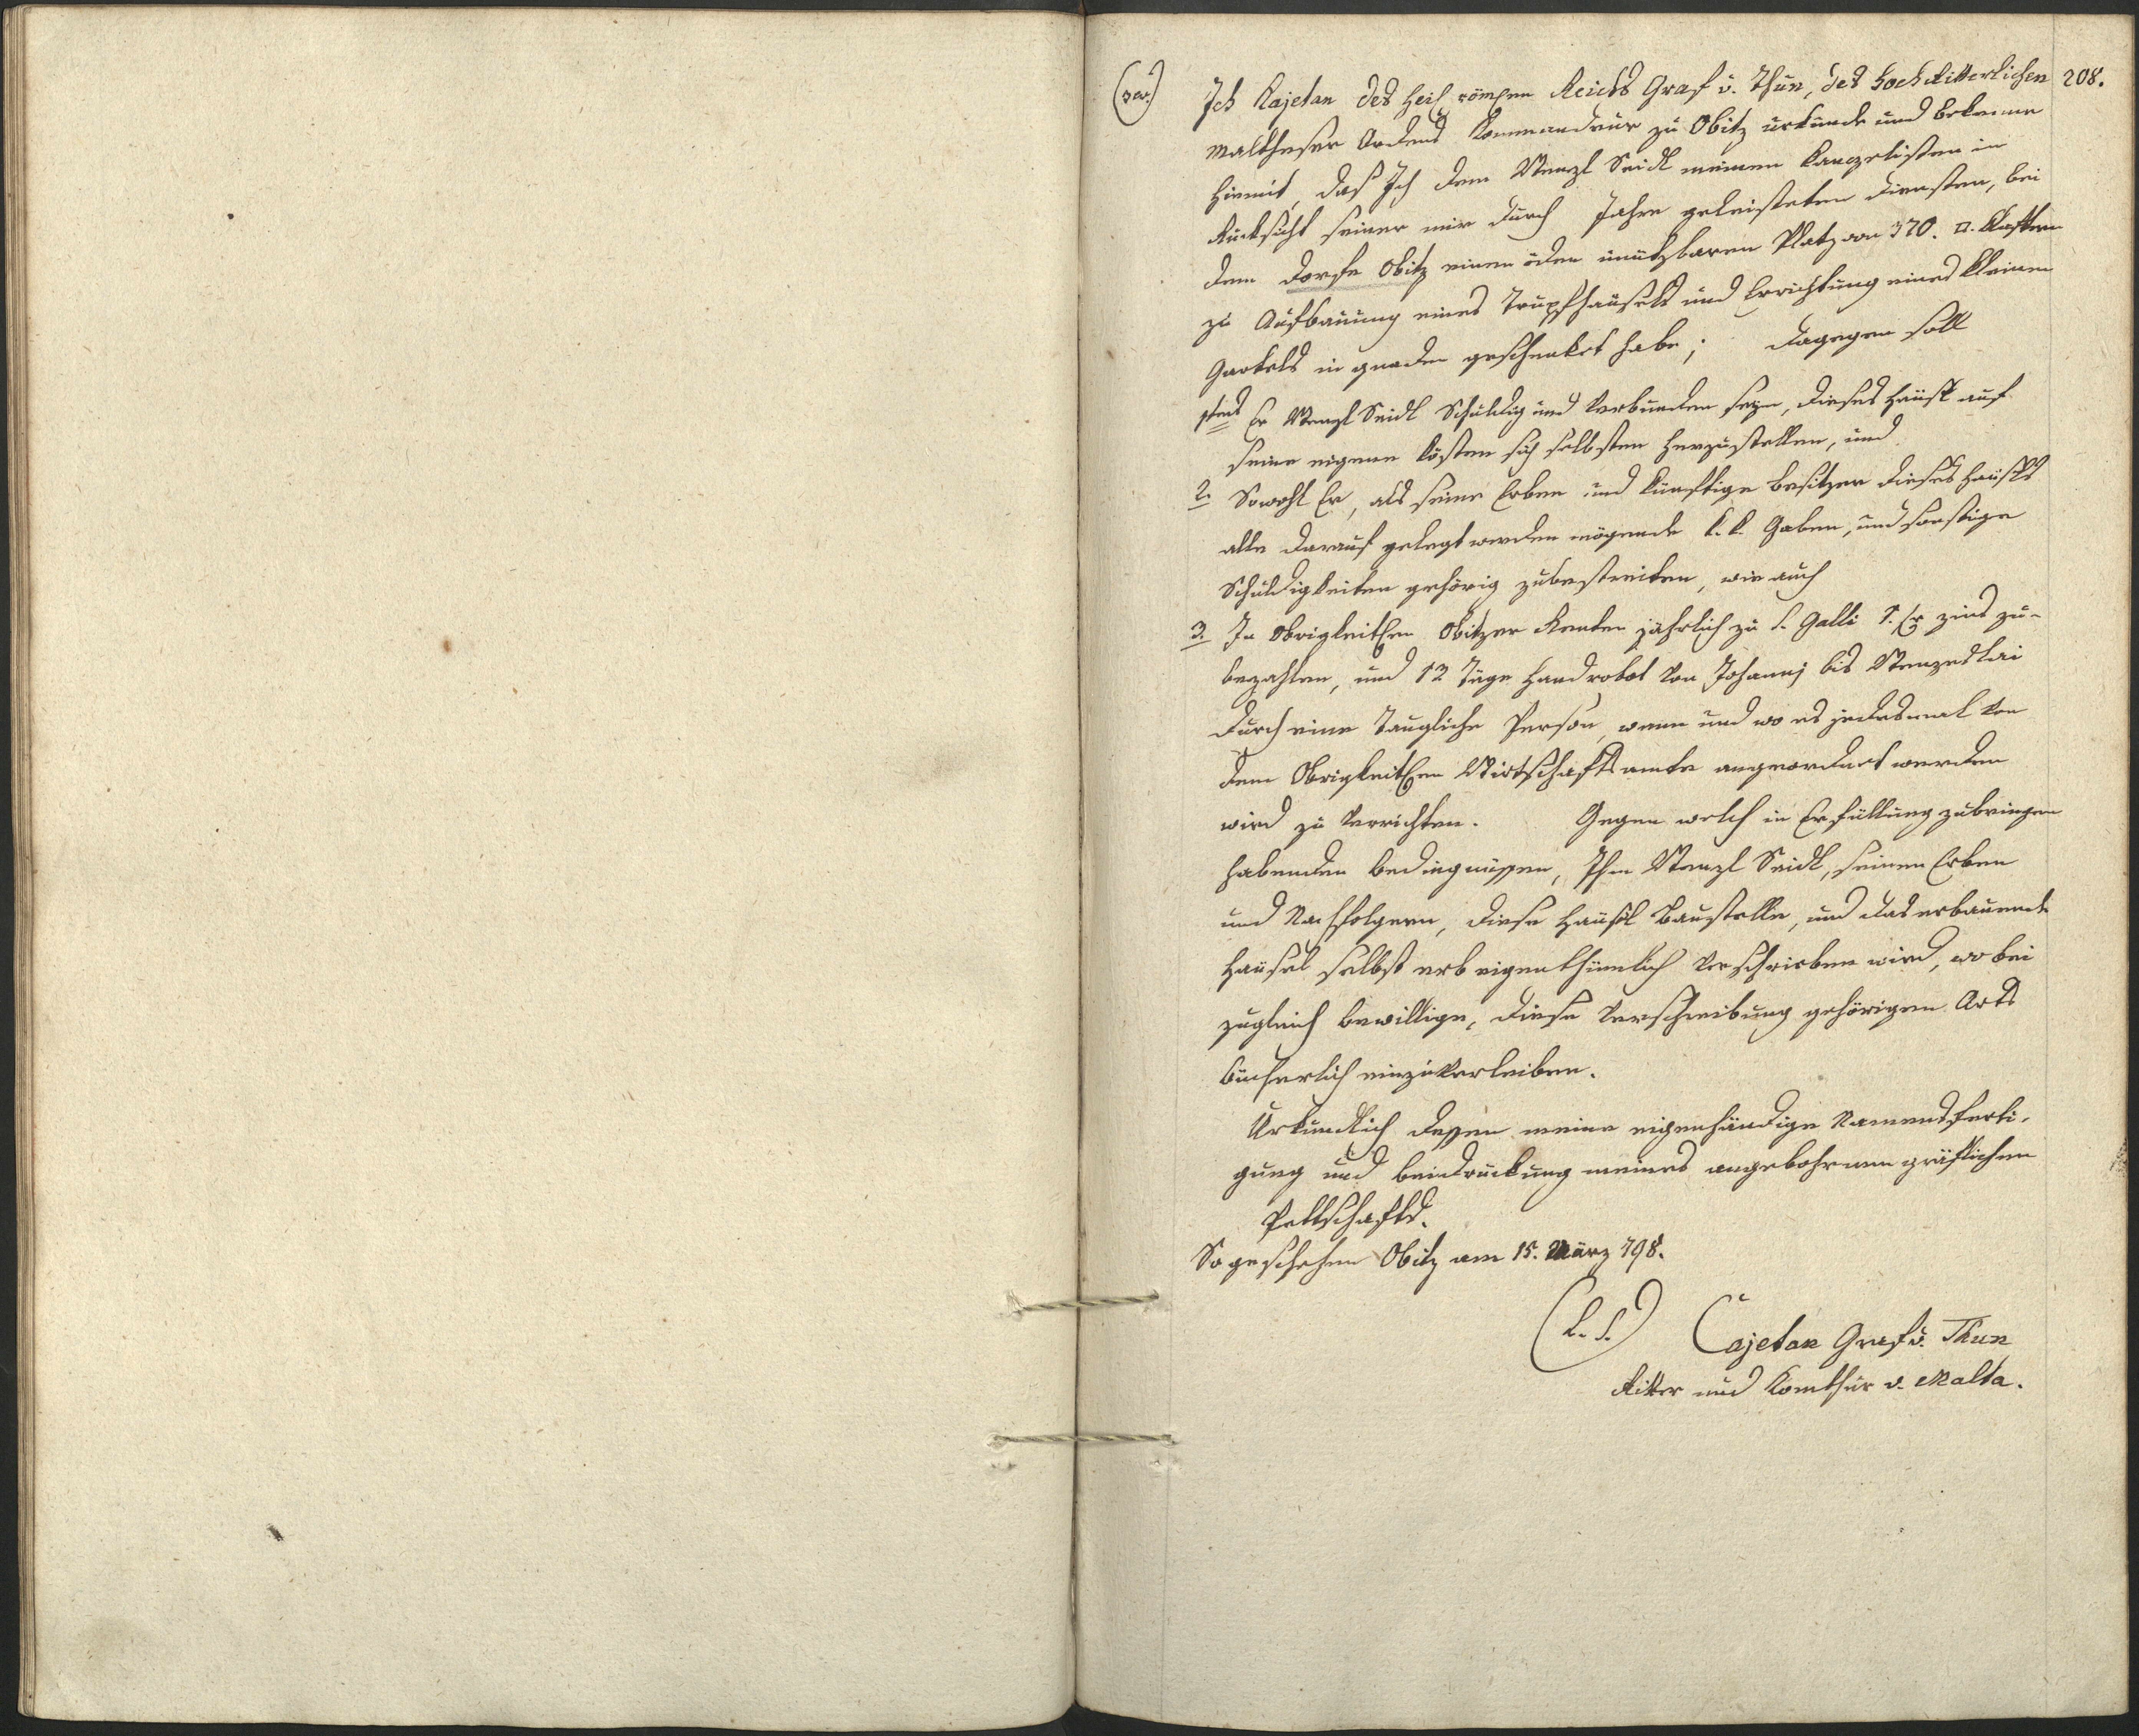 208.
Ich Kajetan des heil römhen Reichs Graf v. Thun, des Hochritterlichen
Maltheser Ordens Kommandeur zu Obitz urkunde und bekenne
hiemit, daß Ich dem Wenzl Seidl meinen Kanzelisten in
Rücksicht seiner mir durch Jahre geleisteten Diensten, bei
dem Dorfe Obitz einen öden unützbaren Platz von 370. □. Klaftern
zu Aufbauung eines Trupfhäusels und Errichtung eines kleinen
Gartels in gnaden geschenket habe; Dagegen soll
1tens Er Wenzl Seidl Schuldig und Verbunden seyn, dieses Häusl auf
seine eigene Kösten sich selbsten herzustellen, und
2. Sowohl Er, als seine Erben und künftige besitzer dieses Häusls
alle darauf gelegt werden mögende k. k. Gaben, und sonstige
Schuldigkeiten gehörig zubestreiten, wie auch
3. In Obrigkeitlhen Obitzer Renten jährlich zu S. Galli 1. zins zu-
bezahlen, und 12 Täge Handrobot von Johannj bis Wenzeslai
durch eine Taugliche Person, wenn und wo es jedesmal von
dem Obrigkeitlhen Wirtschaftsamte angeordnet werden
wird zu Verrichten. Gegen welch in Erfüllung zubringen
habenden bedingnissen, Ihm Wenzl Seidl, seinen Erben
und Nachfolgern, diese Häusl Baustelle, und das erbauende
Häusel selbst erb eigenthümlich Verschrieben wird, wobei
zugleich bewillige, diese Verschreibung gehörigen Orts
bücherlich einzuverleiben.
Urkundlich dessen meine eigenhändige Namensferti-
gung und beidruckung meines angebohrnen gräflichen
Pettschafts.
So geschehen Obitz am 15. März 798.
(L. S.) Cajetan Graf v. Thun
Ritter und Komthur v. Malta.